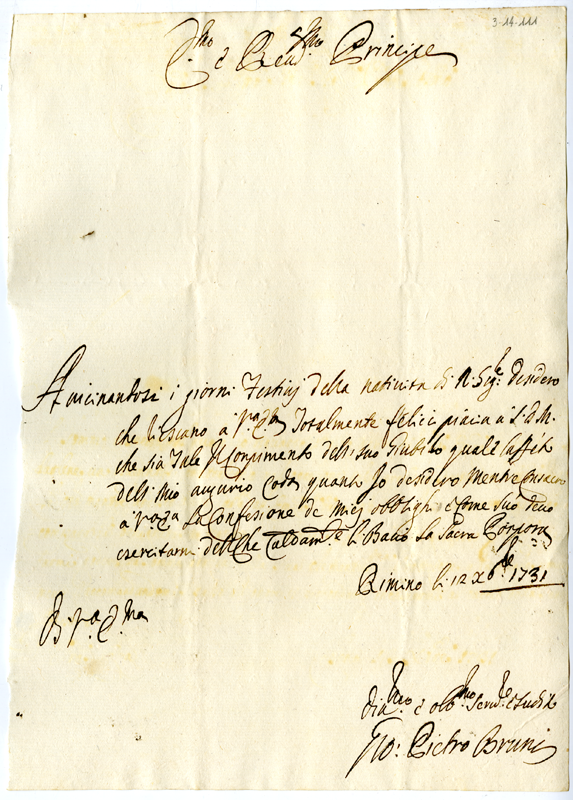 3-14-111
E.mo e Reud.mo Principe
Auicinandosi i giorni festiui della natiuita di N. Sig.re desidero
che riescano à V.ra Em.za Totalmente felici piacia à S. D. M.
che sia Tale il Compimento dell suo Giubilo quale l'affetto
dell mio augurio Coda quanto Io desidero mentre
à V.ra Em.za La Confesione de miej obblighi e Come suo deuo
esercitarmi dell Che Caldam.te li Bacio La Sacra Porpora
Rimino li 12 Xbre 1731
Di V.ra Em.za
e obb.mo Seru.re
Gio: Pietro Bruni